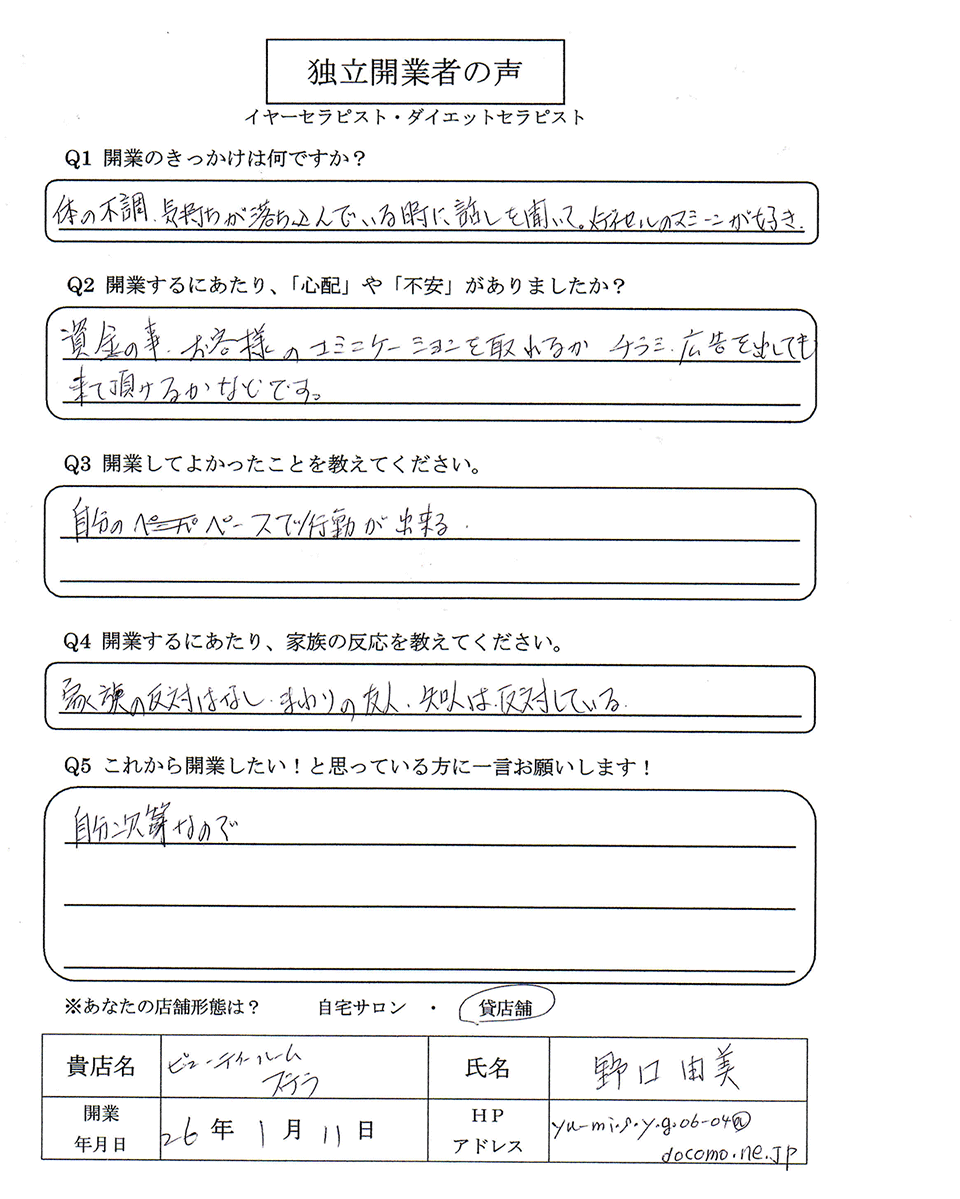 独立開業者の声
イヤーセラピスト・ダイエットセラピスト
Q1 開業のきっかけは何ですか？
体の不調、気持ちが落ち込んでいる時に話しを聞いて。のマシーンが好き.
Q2 開業するにあたり、「心配」や「不安」がありましたか？
資金の事、お客様のコミニケーションを取れるか チラシ、広告を出しても
来て頂けるかなどです。
Q3 開業してよかったことを教えてください。
自分の ペースで行動が出来る.
Q4 開業するにあたり、家族の反応を教えてください。
家族の反対はなし、まわりの友人、知人は、反対している.
Q5 これから開業したい！と思っている方に一言お願いします！
自分次第なので
※あなたの店舗形態は？ 自宅サロン ・ 貸店舗
貴店名 ビューティールーム
ステラ
氏名 野口 由美
開業
年月日 26 年 1 月 11 日
ＨＰ
アドレス yu-mi.s.y.g.06-04@
docomo.ne.jp